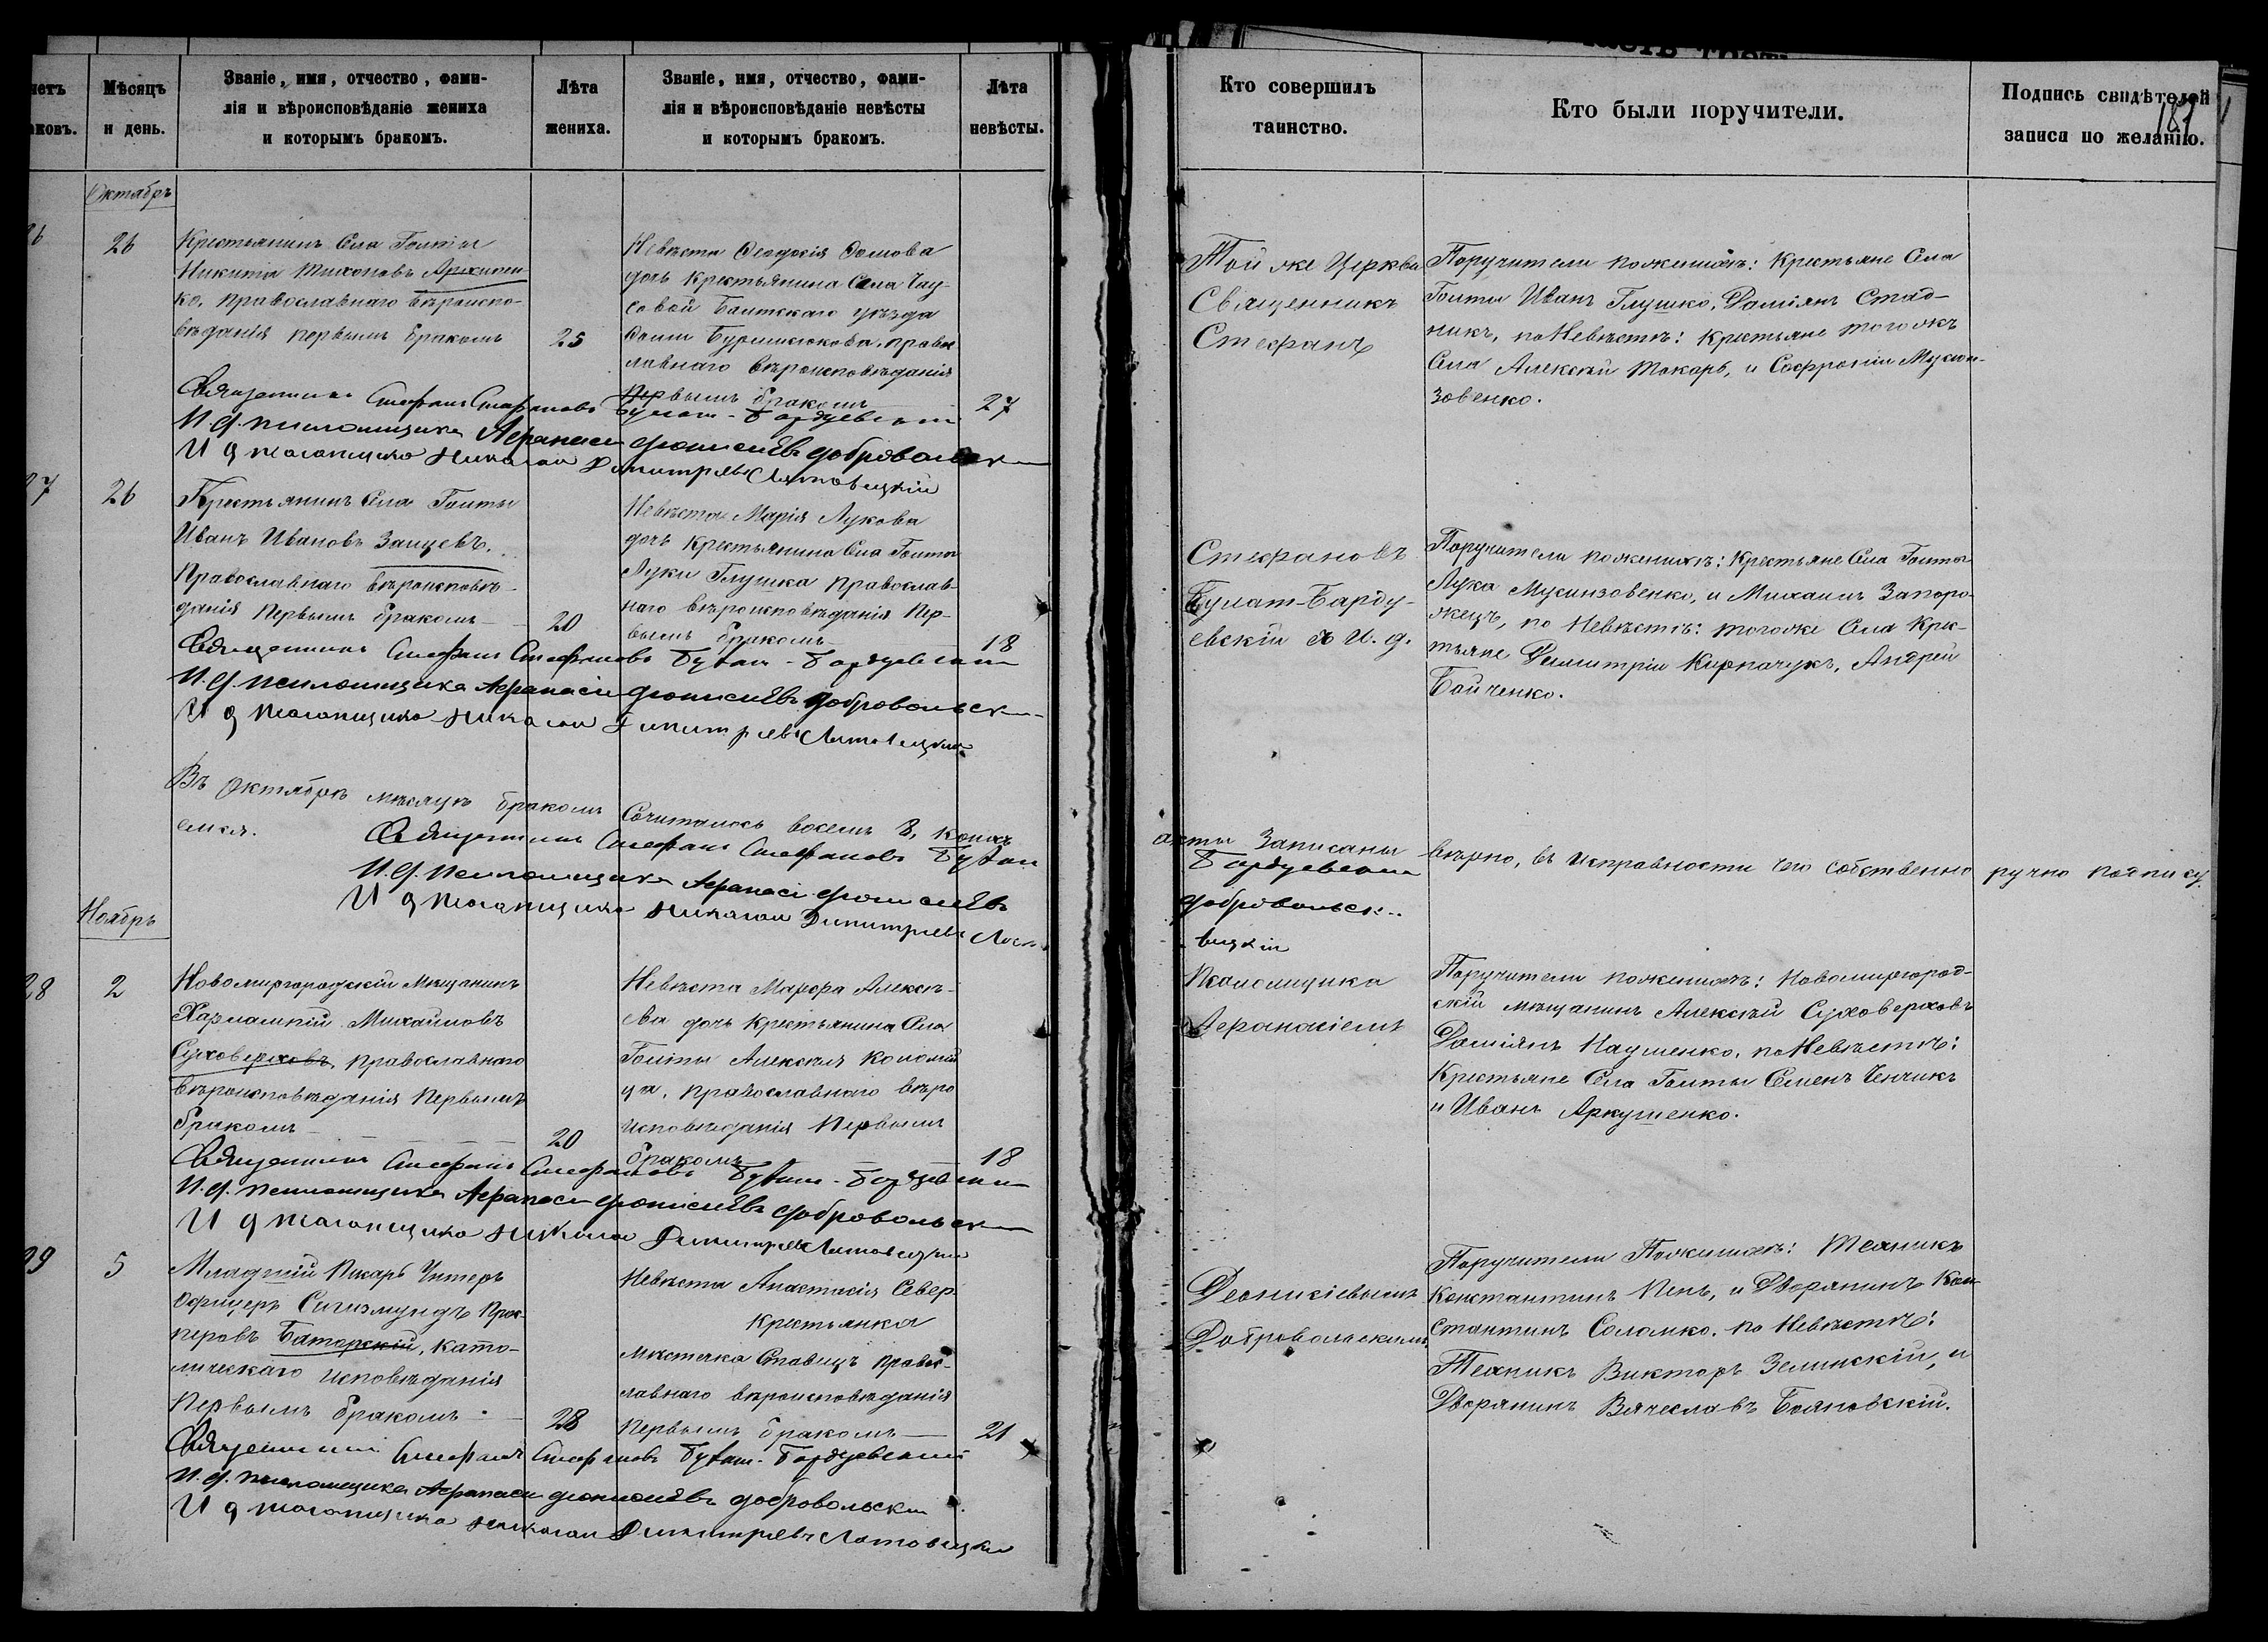 Мѣсяцъ
и день.
Званіе, имя, отчество, фами-
лія и вѣроисповѣданіе жениха
и которымъ бракомъ.
Лѣта
жениха.
Званіе, имя, отчество, фами-
лія и вѣроисповѣданіе невѣсты
и которымъ бракомъ.
Лѣта
невѣсты.
Октябрь
26
26
Крестьянинъ Села Голты
Никита Тихоновъ Архипен-
ко, православнаго вѣроиспо-
вѣданія первымъ бракомъ
25
Невѣста Феодосія Фомова
дочь Крестьянина Села Чау-
совой Балтскаго уѣзда
Фомы православ
лавнаго вѣроисповѣданія
Первымъ бракомъ
27
Священникъ Стефанъ Стефановъ Булат-Бардуевскій
И.д. псаломщика Афанасій Дионисіевъ Добровольскій
И д псаломщика Николай Димитріевъ
27
26
Крестьянинъ Села Голты
Иванъ Ивановъ Заицевъ.
Православнаго вѣроисповѣ-
данія Первымъ бракомъ
20
Невѣста Марія Лукова
дочь Крестьянина Села Голты
Луки Глушка Православ-
наго вѣроисповѣданія Пер-
вымъ бракомъ
18
Священникъ Стефанъ Стефановъ Булат-Бардуевскій
И.д. псаломщика Афанасій Дионисіевъ Добровольскій
И д псаломщика Николай Димитріевъ
Въ Октябрѣ мѣсяцѣ бракомъ Сочиталось восемь 8,
Священникъ Стефанъ Стефановъ Булат
И.д. псаломщика Афанасій Дионисіевъ
И д псаломщика Николай Димитріевъ
Ноябрь
28
2
Новомиргородскій Мѣщанинъ
Харлампій Михайловъ
Суховерховъ, православнаго
вѣроисповѣданія Первымъ
бракомъ
20
Невѣста Марфа Алексѣ-
ева дочь Крестьянина Села
Голты Алексѣя Коломій
ца, православнаго вѣро
исповѣданія Первымъ
бракомъ
18
Священникъ Стефанъ Стефановъ Булат-Бардуевскій
И.д. псаломщика Афанасій Дионисіевъ Добровольскій
И д псаломщика Николай Димитріевъ
29
5
Младшій Писарь Унтеръ
Офицеръ Сигизмундъ Прос-
перовъ Баторскій, като-
лическаго исповѣданія
Первымъ бракомъ
28
Невѣста Анастасія Север
Крестьянка
мѣстечка Ставищъ правос-
лавнаго вѣроисповѣданія
Первымъ бракомъ
21
Священникъ Стефанъ Стефановъ Булат-Бардуевскій
И.д. псаломщика Афанасій Дионисіевъ Добровольскій
И д псаломщика Николай Димитріевъ
Кто совершилъ
таинство.
Кто были поручители.
Подпись свидѣтелей
записи по желанію.
Той же Церкви
Священникъ
Стефанъ
Поручители по женихѣ: Крестьяне Села
Голты Иванъ Глушко, Даміянъ Стад-
никъ, по Невѣстѣ: Крестьяне тогожъ
Села Алексѣй Токарь, и Софроній
зовенко.
Стефановъ
Булат-Барду-
евскій И. д.
Поручители по женихѣ: Крестьяне Села Голты
Лука и Михаилъ Запоро-
жецъ, по Невѣстѣ: тогоже Села Крес-
тьяне Димитрій Кирпачукъ, Андрей
Бойченко.
акты Записаны вѣрно, въ исправности чего собственно ручно подпису
Бардуевскій
Добровольскій
вицкій
Псаломщика
Афанасіемъ
Поручители по женихѣ: Новомиргород-
скій мѣщанинъ Алексѣй Суховерховъ
Даміянъ Науменко, по Невѣстѣ:
Крестьяне Села Голты Семенъ Ченчикъ
и Иванъ Аркушенко.
Деонисіевымъ
Добровольскимъ
Поручители По женихѣ: Техникъ
Константинъ Пень, и Дворянинъ Кон-
стантинъ Соломко. по Невѣстѣ:
Техникъ Викторъ Зелинскій, и
Дворянинъ Вячеславъ Бояновскій.